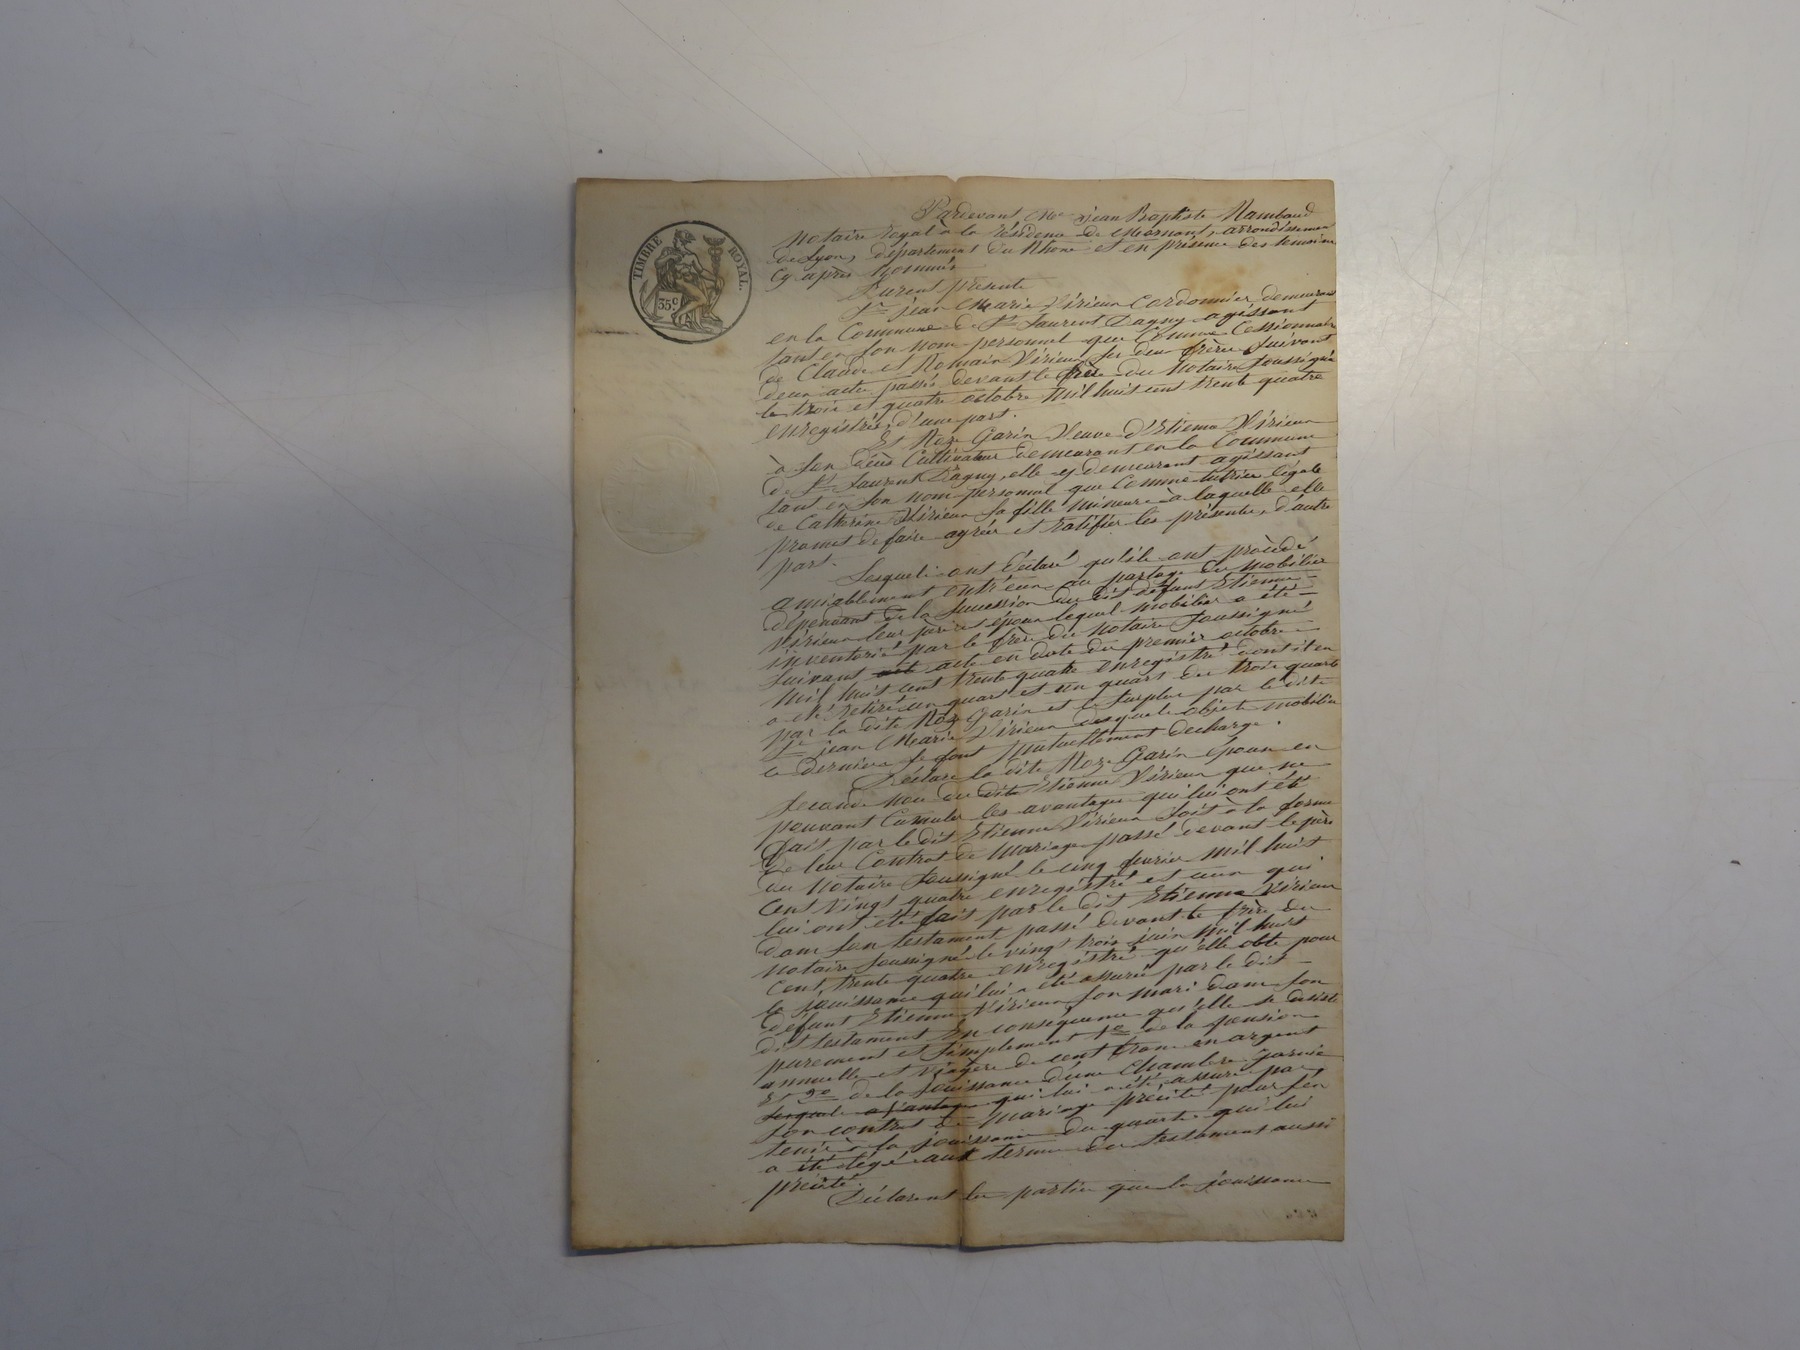 TIMBRE ROYAL.
35c
Pardevant Me jean Baptiste Rambaud
Notaire royal à la résidence de Mornant, arrondissement
de Lyon, département du Rhône et en présence des temoins
cy après Nommés
Furent présents
Sr jean Marie Virieux Cordonnier demeurant
en la Commune de St Laurent Dagny agissant
tant en son nom personnel que Comme Cessionnaire
de Claude et Romain Virieux ses deux frères suivant
deux actes passés devant le frère du Notaire soussigné
les trois et quatre octobre mil huit cent trente quatre
enregistrés, d'une part.
Et Roze Garin Veuve d'Etienne Virieux
à son décès Cultivateur demeurant en la Commune
de St Laurent Dagny, elle y demeurant agissant
tant en son nom personnel que Comme tutrice légale
de Catherine Virieux sa fille mineure à laquelle elle
promet de faire agréer et ratifier les présentes, d'autre
part.
Lesquels ont déclaré qu'ils ont procédé
amiablement entr'eux au partage du mobilier
dépendant de la succession du dit défunt Etienne
Virieux leur père et époux lequel mobilier a été
inventorié par le frère du notaire soussigné
suivant acte en date du premier octobre
mil huit cent trente quatre enregistré dont il en
a été retiré un quart et un quart des trois quarts
par la dite Roze Garin et le surplus par le dit
Sr jean Marie Virieux desquels objets mobiliers
ces derniers se font mutuellement decharge.
Déclare la dite Roze Garin épouse en
seconde noce du dit Etienne Virieux que ne
pouvant Cumuler les avantages qui lui ont été
fait par le dit Etienne Virieux soit à la forme
de leur Contrat de mariage passé devant le père
du Notaire soussigné le cinq fevrier mil huit
Cent vingt quatre enregistré et ceux qui
lui ont été fait par le dit Etienne Virieux
dans son testament passé devant le frère du
Notaire soussigné le vingt trois juin mil huit
Cent trente quatre enregistré qu'elle obte pour
la jouissance qui lui a été assurée par le dit
défunt Etienne Virieux son mari dans son
dit testament En conséquence qu'elle se desiste
purement et simplement 1o de la pension
annuelle et viagère de cent francs en argent
& 2o de la jouissance d'une Chambre garnie
qui lui a été assuré par
son contrat de mariage précité pour s'en
tenir à la jouissance du quart qui lui
a été légé aux termes du testament aussi
précité.
Déclarent les parties que la jouissance